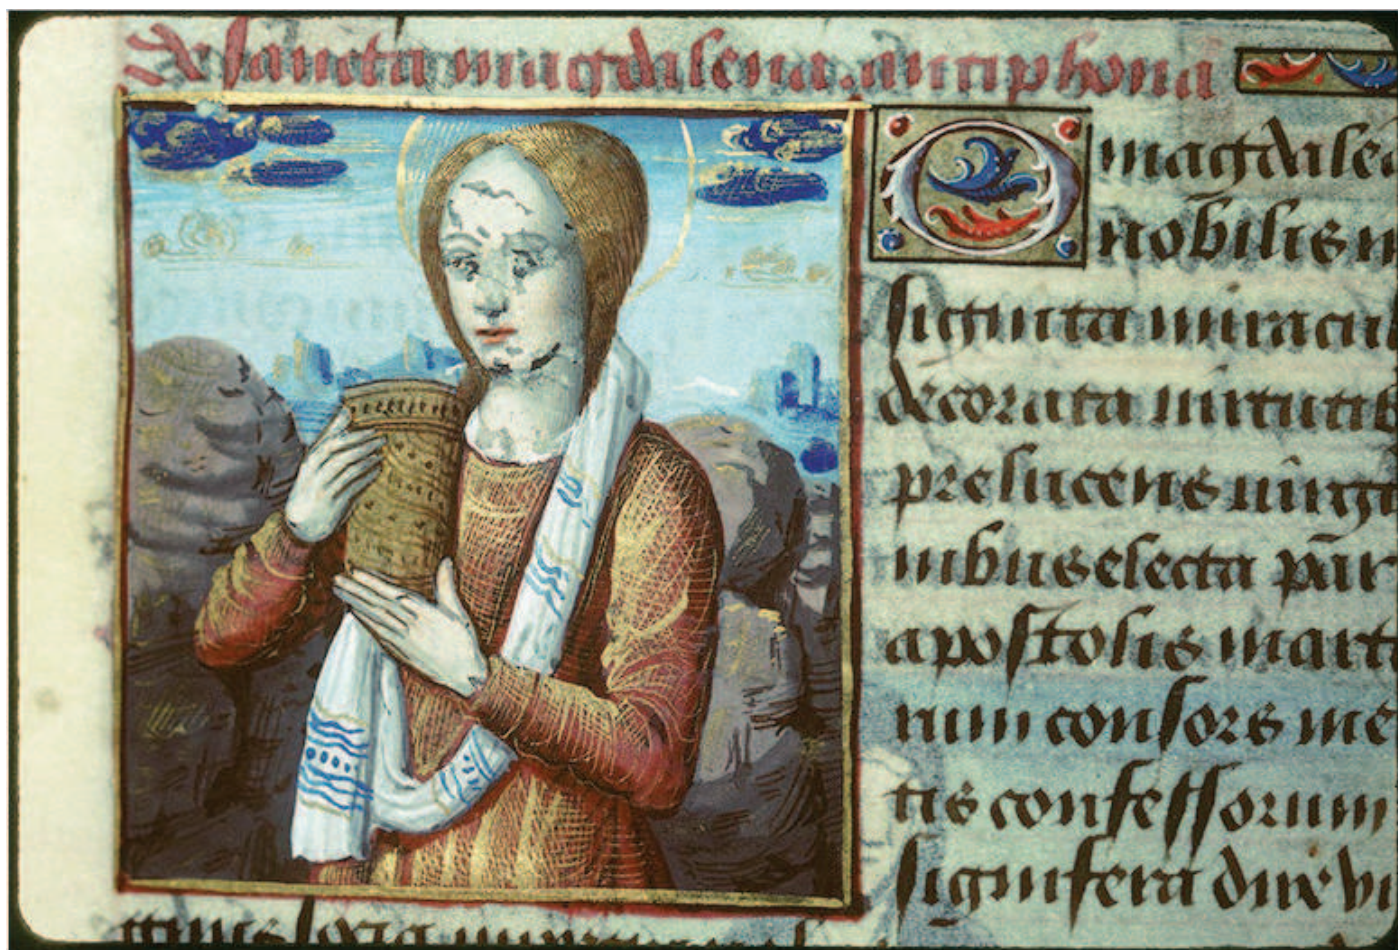 De sancta magdalena. antiphona
O magdale
nobilis
signita miracul
decorata virtutib
prelucens virgi
nibus electa par
apostolis mart
rum consors me
tis confessorum
signifera